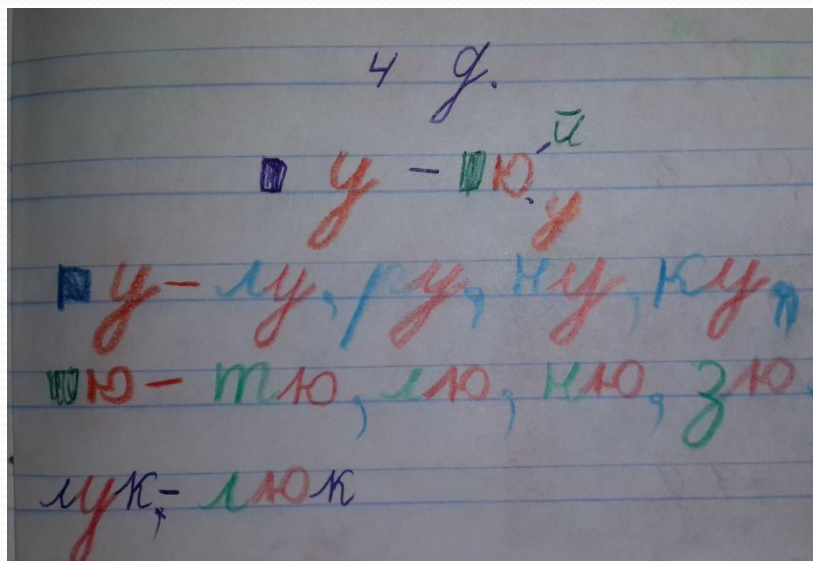 4 д.
у - ю й у
у - лу, ру, ну, ку,
ю - тю, лю, ню, зю.
лук, - люк